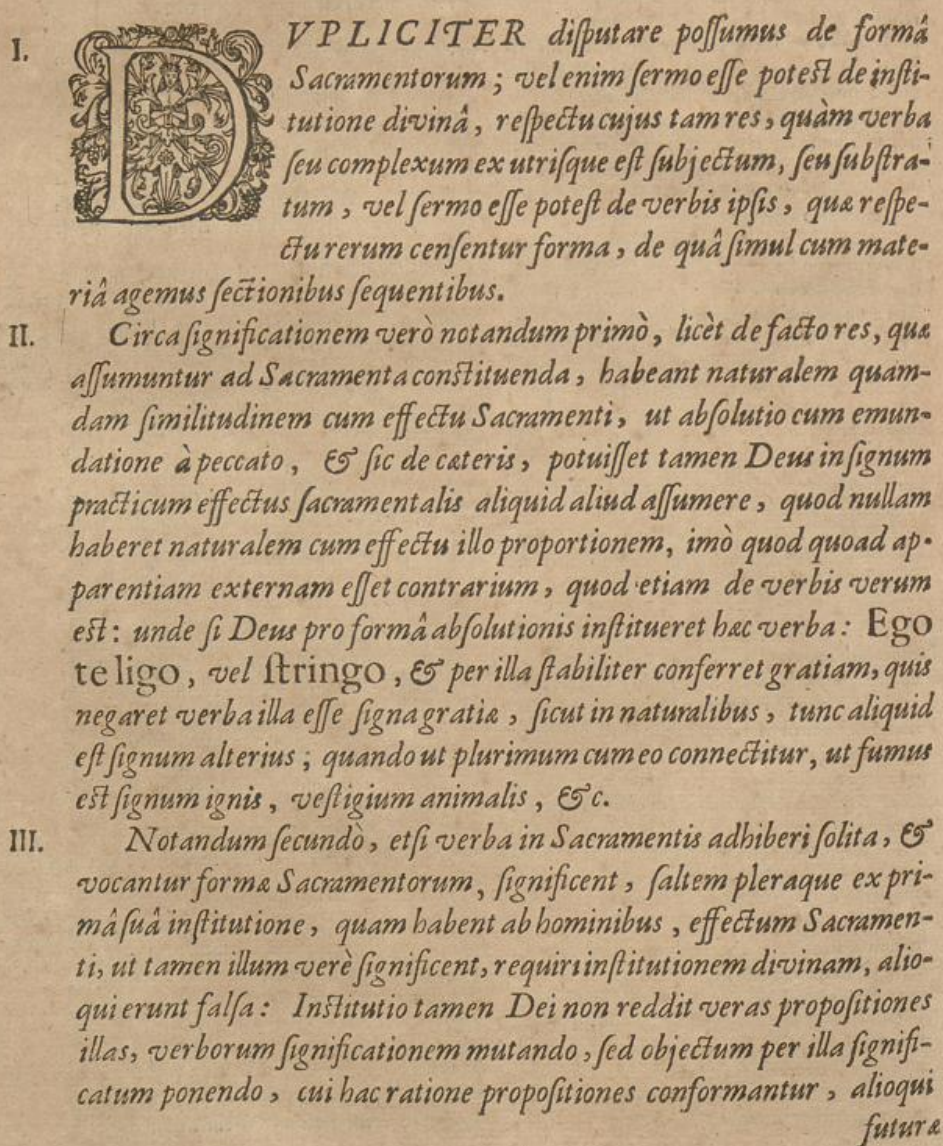 I. DVPLICITER disputare possumus de formâ
Sacramentorum; vel enim sermo esse potest de insti-
tutione divinâ, respectu cujus tam res, quàm verba
seu complexum ex utrisque est subjectum, seu substra-
tum, vel sermo esse potest de verbis ipsis, quæ respe-
ctu rerum censentur forma, de quâ simul cum mate-
riâ agemus sectionibus sequentibus.
II. Circa significationem verò notandum primò, licèt de facto res, quæ
assumuntur ad Sacramenta constituenda, habeant naturalem quam-
dam similitudinem cum effectu Sacramenti, ut absolutio cum emun-
datione à peccato, & sic de cæteris, potuisset tamen Deus in signum
practicum effectus sacramentalis aliquid aliud assumere, quod nullam
haberet naturalem cum effectu illo proportionem, imò quod quoad ap-
parentiam externam esset contrarium, quod etiam de verbis verum
est: unde si Deus pro formâ absolutionis institueret hæc verba: Ego
te ligo, vel stringo, & per illa stabiliter conferret gratiam, quis
negaret verba illa esse signa gratiæ, sicut in naturalibus, tunc aliquid
est signum alterius; quando ut plurimum cum eo connectitur, ut fumus
est signum ignis, vestigium animalis, &c.
III. Notandum secundò, etsi verba in Sacramentis adhiberi solita, &
vocantur formæ Sacramentorum, significent, saltem pleraque ex pri-
mâ suâ institutione, quam habent ab hominibus, effectum Sacramen-
ti, ut tamen illum verè significent, requiri institutionem divinam, alio-
qui erunt falsa: Institutio tamen Dei non reddit veras propositiones
illas, verborum significationem mutando, sed objectum per illa signifi-
catum ponendo, cui hac ratione propositiones conformantur, alioqui
futuræ